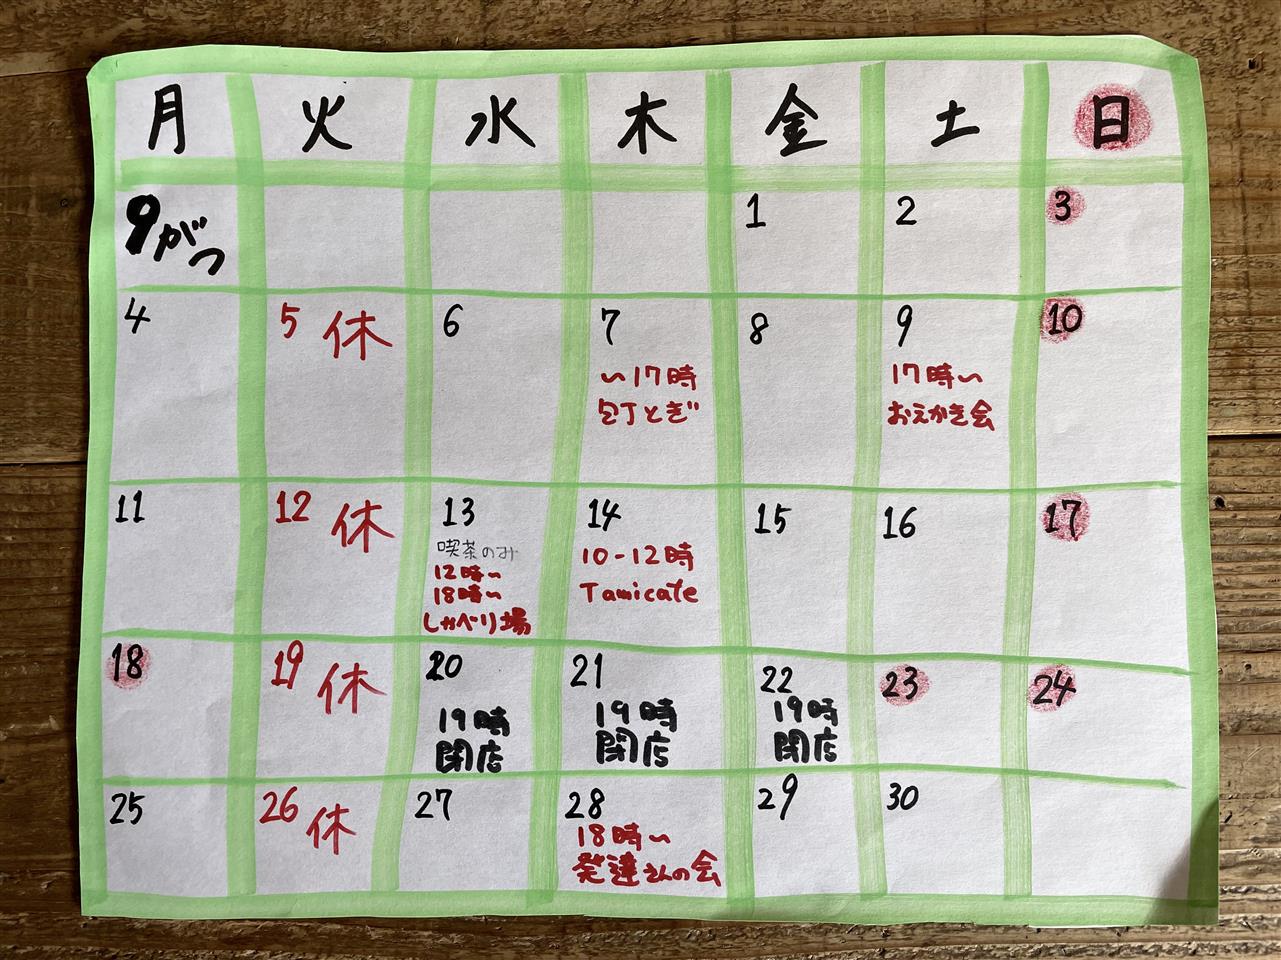 月 火 水 木 金 土 日
9がつ 1 2 3
4 5 休 6 7 8 9 10
〜17時
包丁とぎ
17時〜
おえかき会
11 12 休 13 14 15 16 17
喫茶のみ
12時〜
18時〜
しゃべり場
10-12時
Tamicate
18 19 休 20 21 22 23 24
19時
閉店
19時
閉店
19時
閉店
25 26 休 27 28 29 30
18時〜
発達さんの会